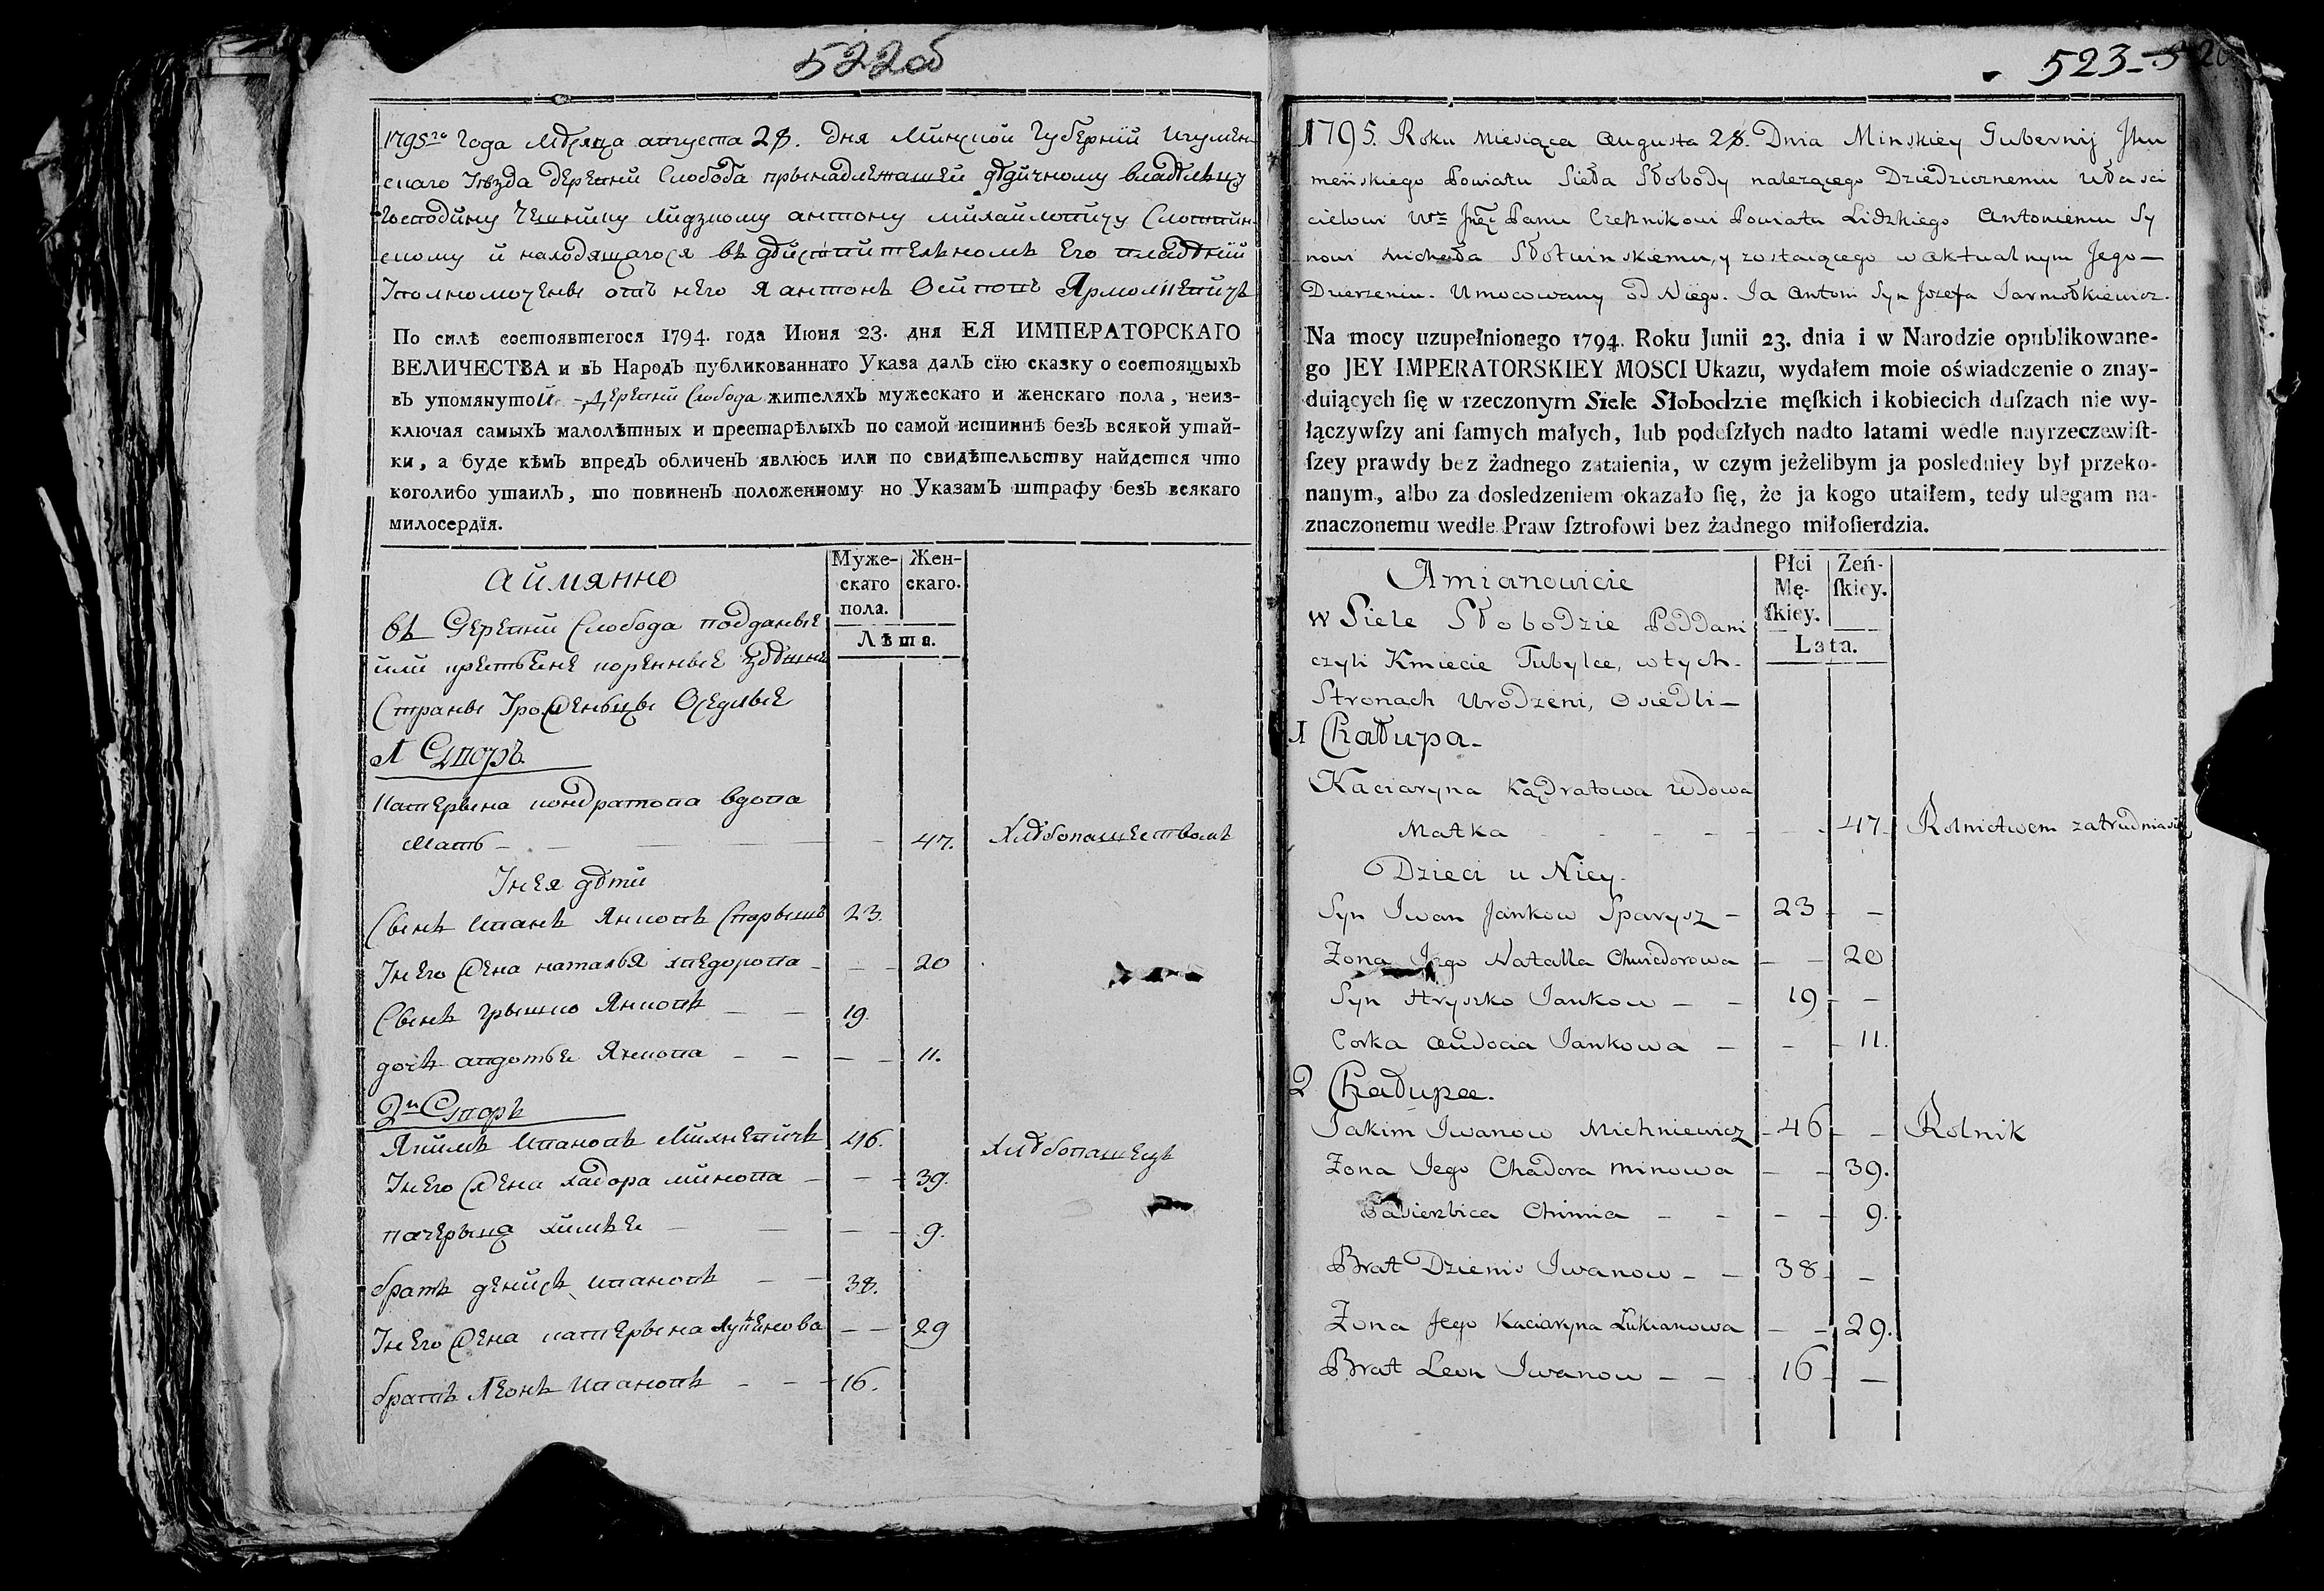 522об
1795го Года мѣсяца августа 28. дня Минской Губернии Игумен
скаго Уѣзда деревни Слобода прынадлежащей дѣдичному владѣлцу
Господину Чешнику лидзкому антону михайловичу Слотвин
скому и находящагося въ дѣйствителномъ Его владѣнии
Уполномоченъ отъ него Я антонъ Осиповъ Ярмолкевичъ
По силѣ состоявшегося 1794. года Июня 23. дня ЕЯ ИМПЕРАТОРСКАГО
ВЕЛИЧЕСТВА и въ Народъ публикованнаго Указа далъ сїю сказку о состоящыхъ
въ упомянутой деревни Слобода жителяхъ мужескаго и женскаго пола, неиз-
ключая самыхъ малолѣтных и престарѣлыхъ по самой истиннѣ безъ всякой утай-
ки, а буде кѣмъ впредъ обличенъ явлюсь или по свидѣтельству найдется что
коголибо утаилъ, то повиненъ положенному но Указамъ штрафу безъ всякаго
милосердїя.
аймянно
Муже-
скаго
пола.
Жен-
скаго.
Лѣта.
въ Деревни Слобода подданые
или крестьяне коренные
Страны Урожэнъцы Оседлые
1 Дворъ
Катерына кондратова вдова
Мать 47. Хлѣбопашествомъ
Унея дѣти
Сынъ иванъ Янковъ Спарышъ 23.
Унего жена наталья хведорова 20
Сынъ грышко Янковъ 19.
дочъ авдотъя Янкова 11.
2й Дворъ
Якимъ ивановъ Михневичъ 46. Хлѣбопашецъ
Унего жена хадора минова 39.
пачерыца химъя 9.
братъ денисъ ивановъ 38.
Унего жена катерына лукъянова 29
братъ леонъ ивановъ 16.
523
1795. Roku Miesiąca Augusta 28. Dnia Minskiey Gubernij Jhu
meńskiego Powiatu Sieła Słobody nalezącego Dziedzicznemu Własci
cielowi Panu Czesznikowi Powiatu Lidzkiego Antoniemu Sy
nowi Michała Słotwinskiemu, y zostaiącego w aktualnym Jego
Dzierzeniu. Umocowany od Niego. Ja Antoni Syn Jozefa Jarmołkiewicz.
Na mocy uzupełnionego 1794. Roku Junii 23. dnia i w Narodzie opublikowane-
go JEY IMPERATORSKIEY MOSCI Ukazu, wydałem moie oświadczenie o znay-
duiących ſię w rzeczonym Siele Słobodzie męſkich i kobiecich duſzach nie wy-
łączywſzy ani ſamych małych, lub podeſzłych nadto latami wedle nayrzeczewiſt-
ſzey prawdy bez żadnego zataienia, w czym jeżelibym ja posledniey był przeko-
nanym, albo za dosledzeniem okazało ſię, że ja kogo utaiłem, tedy ulegam na-
znaczonemu wedle Praw ſztrofowi bez żadnego miłoſierdzia.
Amianowicie
Płci
Mę-
ſkiey.
Żeń-
ſkiey.
Lata.
w Siele Słobodzie Poddani
czyli Kmiecie Tubylce, w tych
Stronach Urodzeni, Osiedli
1 Chałupa.
Kaciaryna Kądratowa Wdowa
Matka 47 Rolnictwem zatrudnia się
Dzieci u Niey.
Syn Iwan Jankow Sparysz 23
Żona Jego Natalla Chwiedorowa 20
Syn Hryszko Jankow 19
Corka Audocia Jankowa 11.
2 Chałupa.
Jakim Iwanow Michniewicz 46 Rolnik
Żona Jego Chadora Minowa 39.
Pasierbica Chimia 9.
Brat Dzienis Iwanow 38
Żona Jego Kaciaryna Łukianowa 29.
Brat Leon Iwanow 16